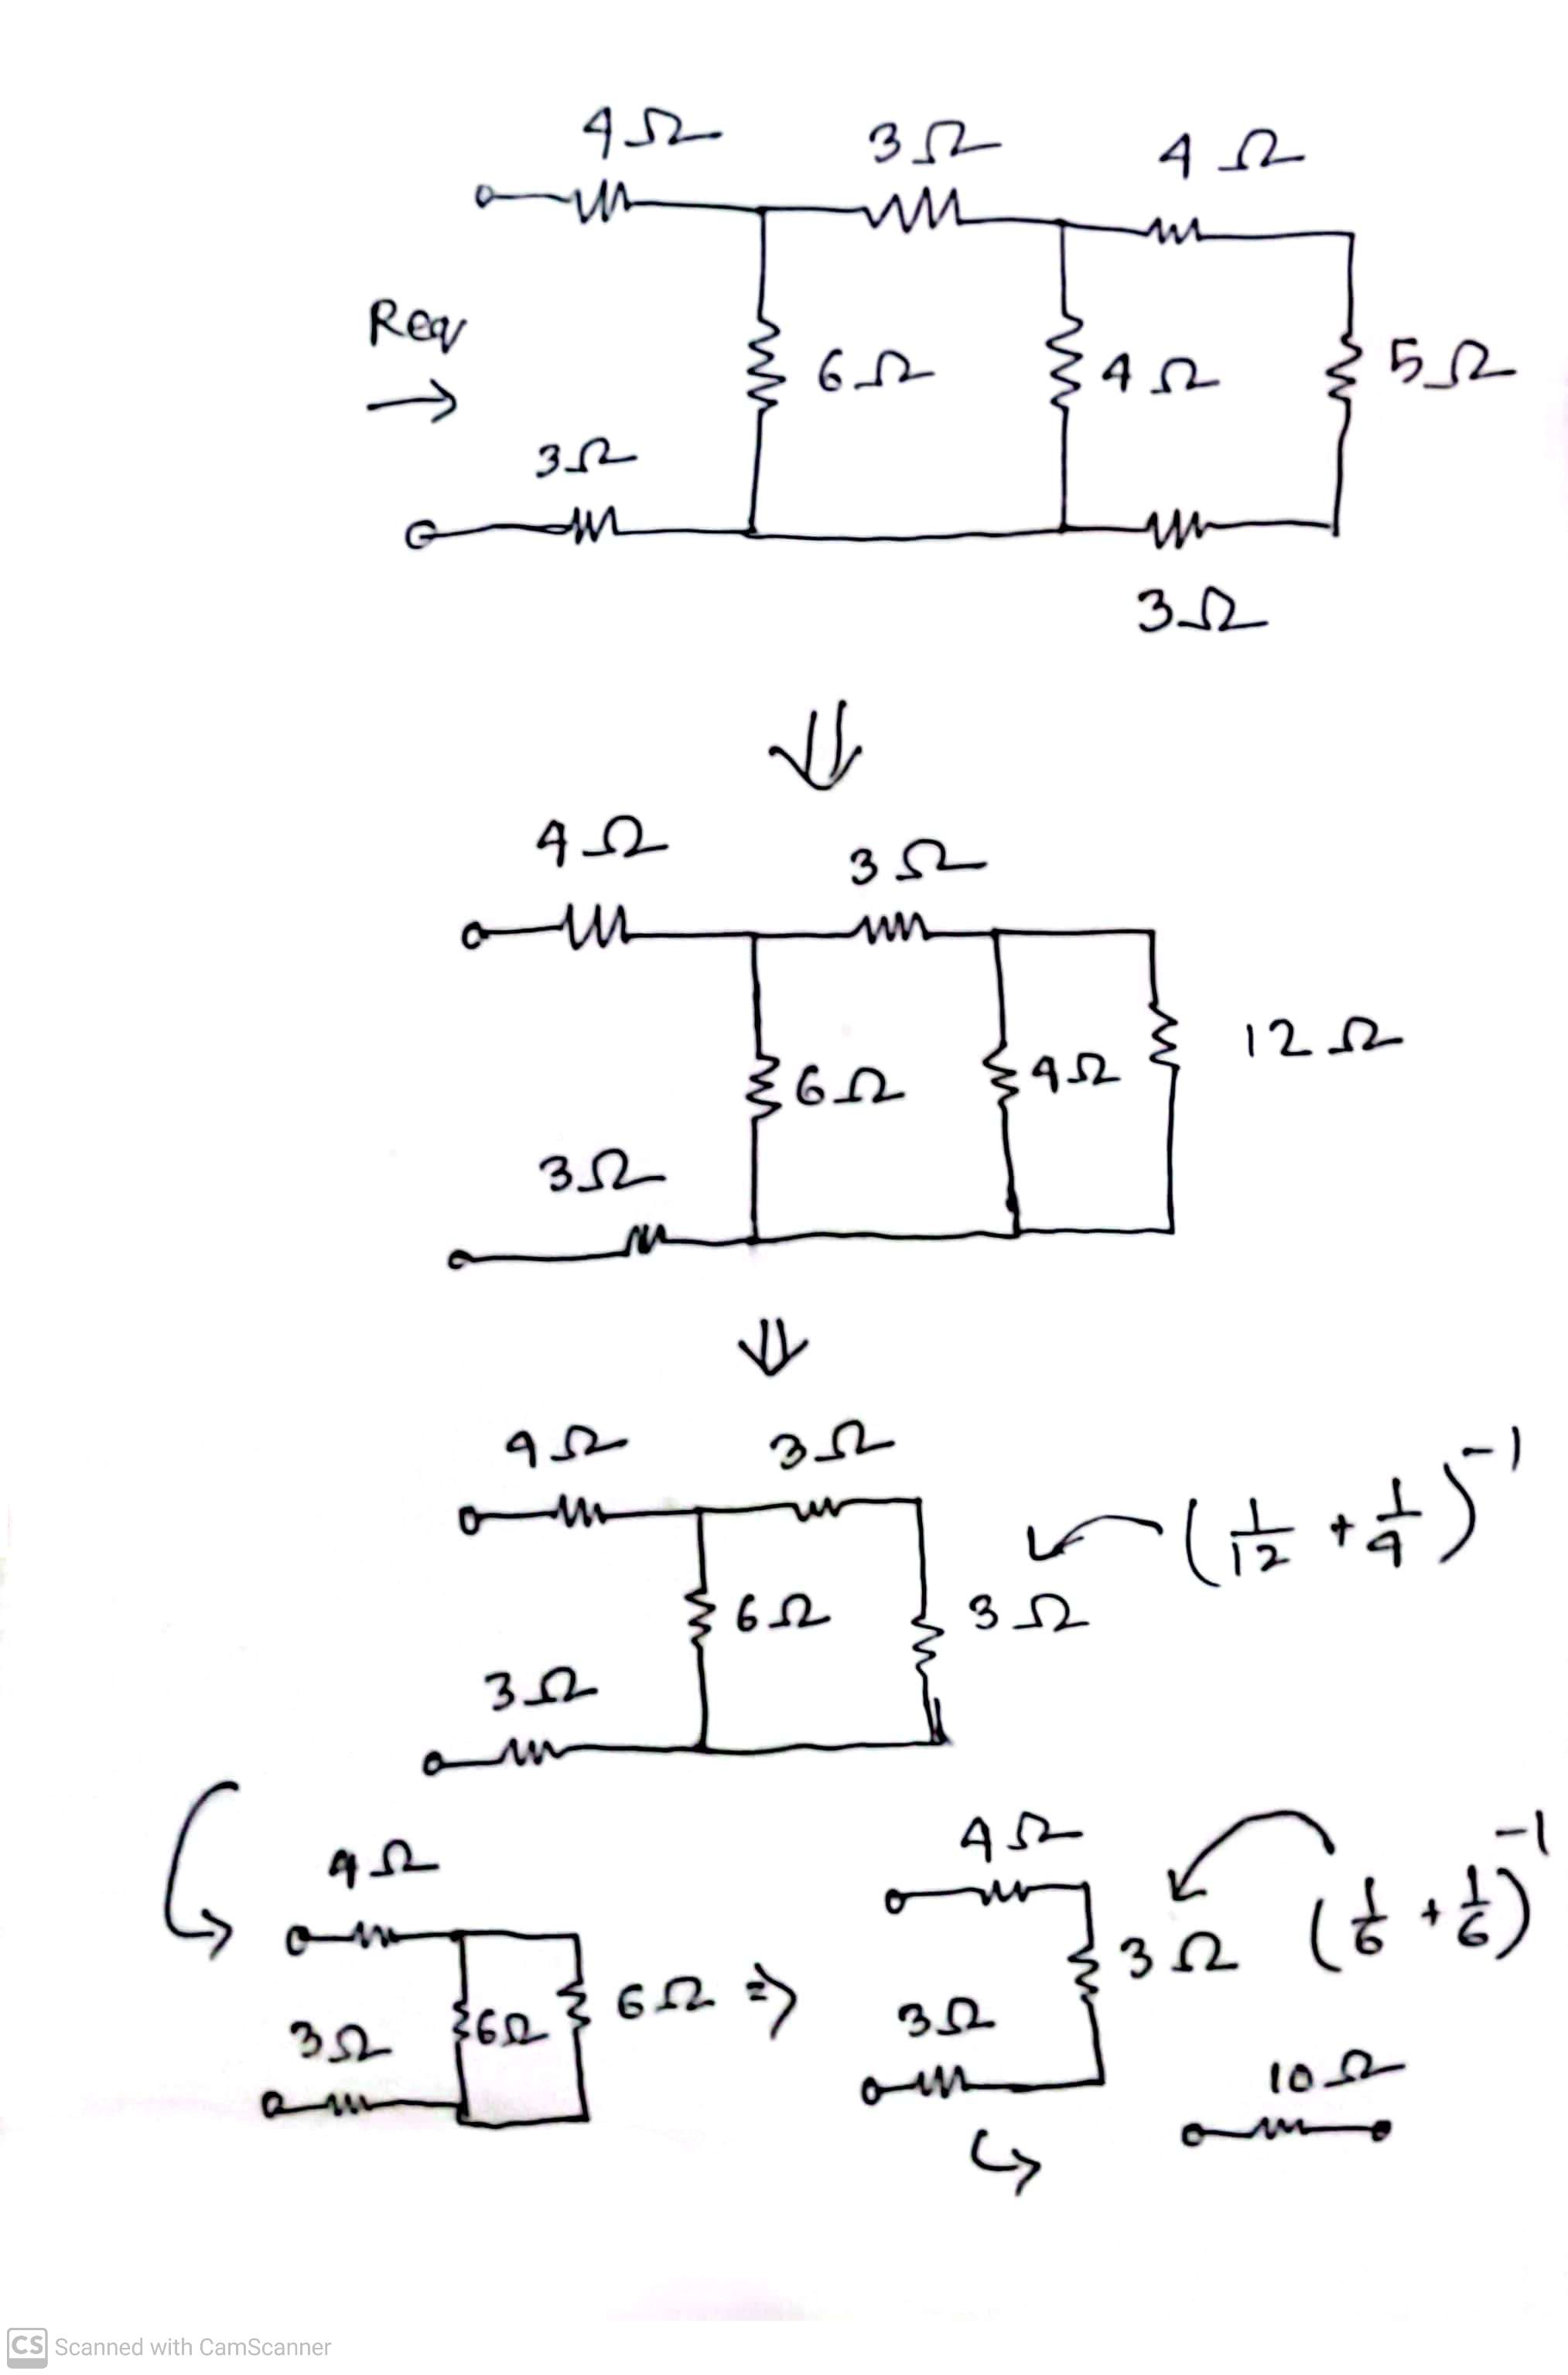 4Ω 3Ω 4Ω
Req
6Ω 4Ω 5Ω
3Ω
3Ω
4Ω 3Ω
6Ω 4Ω 12Ω
3Ω
4Ω 3Ω
(1/12 + 1/4)⁻¹
6Ω 3Ω
3Ω
4Ω
3Ω 6Ω 6Ω ⇒
4Ω
3Ω (1/6 + 1/6)⁻¹
3Ω
10Ω
CS Scanned with CamScanner